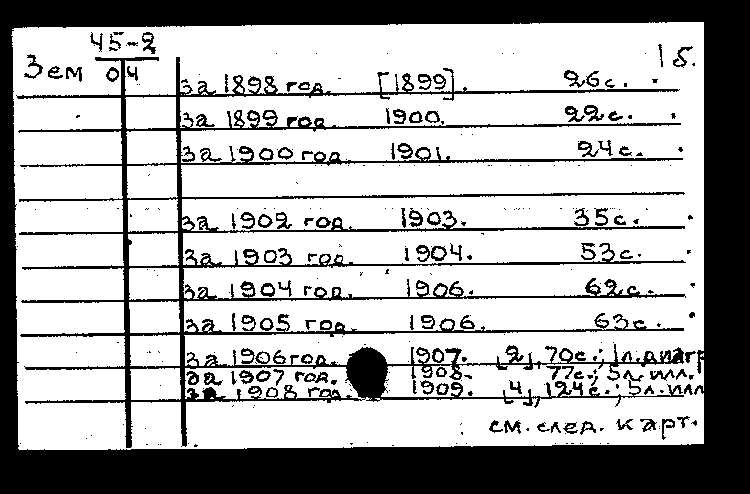 45-2
Зем 04
1б.
за 1898 год. [1899]. 26с.
за 1899 год. 1900. 22с.
за 1900 год. 1901. 24с.
за 1902 год. 1903. 35с.
за 1903 год. 1904. 53с.
за 1904 год. 1906. 62с.
за 1905 год. 1906. 63с.
за 1906 год. 1907. [2], 70с.; 1л. диагр
за 1907 год. 1908. 77с.; 5л. илл.
за 1908 год. 1909. [4], 124с.; 5л. илл
см. след. карт.